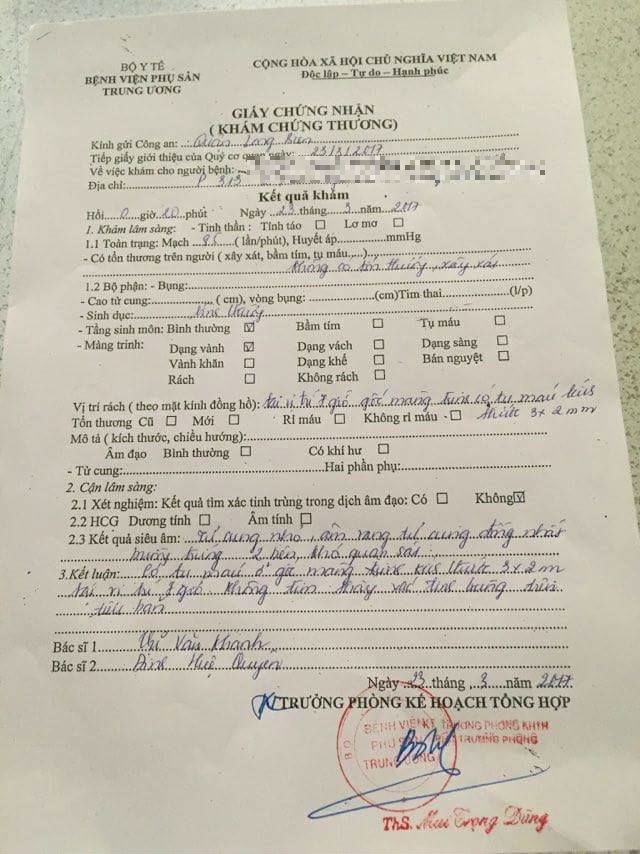 BỘ Y TẾ
BỆNH VIỆN PHỤ SẢN
TRUNG ƯƠNG
CỘNG HÒA XÃ HỘI CHỦ NGHĨA VIỆT NAM
Độc lập – Tự do – Hạnh phúc
GIẤY CHỨNG NHẬN
( KHÁM CHỨNG THƯƠNG)
Kính gửi Công an: Quận Long Biên
Tiếp giấy giới thiệu của Quý cơ quan ngày: 23/3/2017
Về việc khám cho người bệnh:
Địa chỉ: P 313
Kết quả khám
Hồi 0 giờ 20 phút Ngày 23 tháng 3 năm 2017
1. Khám lâm sàng: - Tinh thần : Tỉnh táo Lơ mơ
1.1 Toàn trạng: Mạch 85 ( lần/phút), Huyết áp mmHg
- Có tổn thương trên người ( xây xát, bầm tím, tụ máu,...)
Không có tổn thương, xây xát
1.2 Bộ phận: - Bụng:
- Cao tử cung: ( cm), vòng bụng: (cm)Tim thai (l/p)
- Sinh dục:
- Tầng sinh môn: Bình thường Bầm tím Tụ máu
- Màng trinh: Dạng vành Dạng vách Dạng sàng
Vành khăn Dạng khế Bán nguyệt
Rách Không rách
Vị trí rách ( theo mặt kính đồng hồ): tại vị trí 7 giờ gốc màng trinh có tụ máu kích
thước 3x2mm
Tổn thương Cũ Mới Rỉ máu Không rỉ máu
Mô tả ( kích thước, chiều hướng):
Âm đạo Bình thường Có khí hư
- Tử cung: Hai phần phụ:
2. Cận lâm sàng:
2.1 Xét nghiệm: Kết quả tìm xác tinh trùng trong dịch âm đạo: Có Không
2.2 HCG Dương tính Âm tính
2.3 Kết quả siêu âm: Tử cung nhỏ, âm vang tử cung đồng nhất
buồng trứng 2 bên khó quan sát
3.Kết luận: Có tụ máu ở gốc màng trinh kích thước 3x2m
tại vị trí 7 giờ không tìm thấy xác tinh trùng trên
tiêu bản
Bác sĩ 1 Vũ Văn Khanh
Bác sĩ 2
Ngày 23 tháng 3 năm 2017
TRƯỞNG PHÒNG KẾ HOẠCH TỔNG HỢP
BỆNH VIỆN KT. TRƯỞNG PHÒNG KHTH
PHỤ SẢN PHÓ TRƯỞNG PHÒNG
TRUNG ƯƠNG
ThS. Mai Trọng Dũng